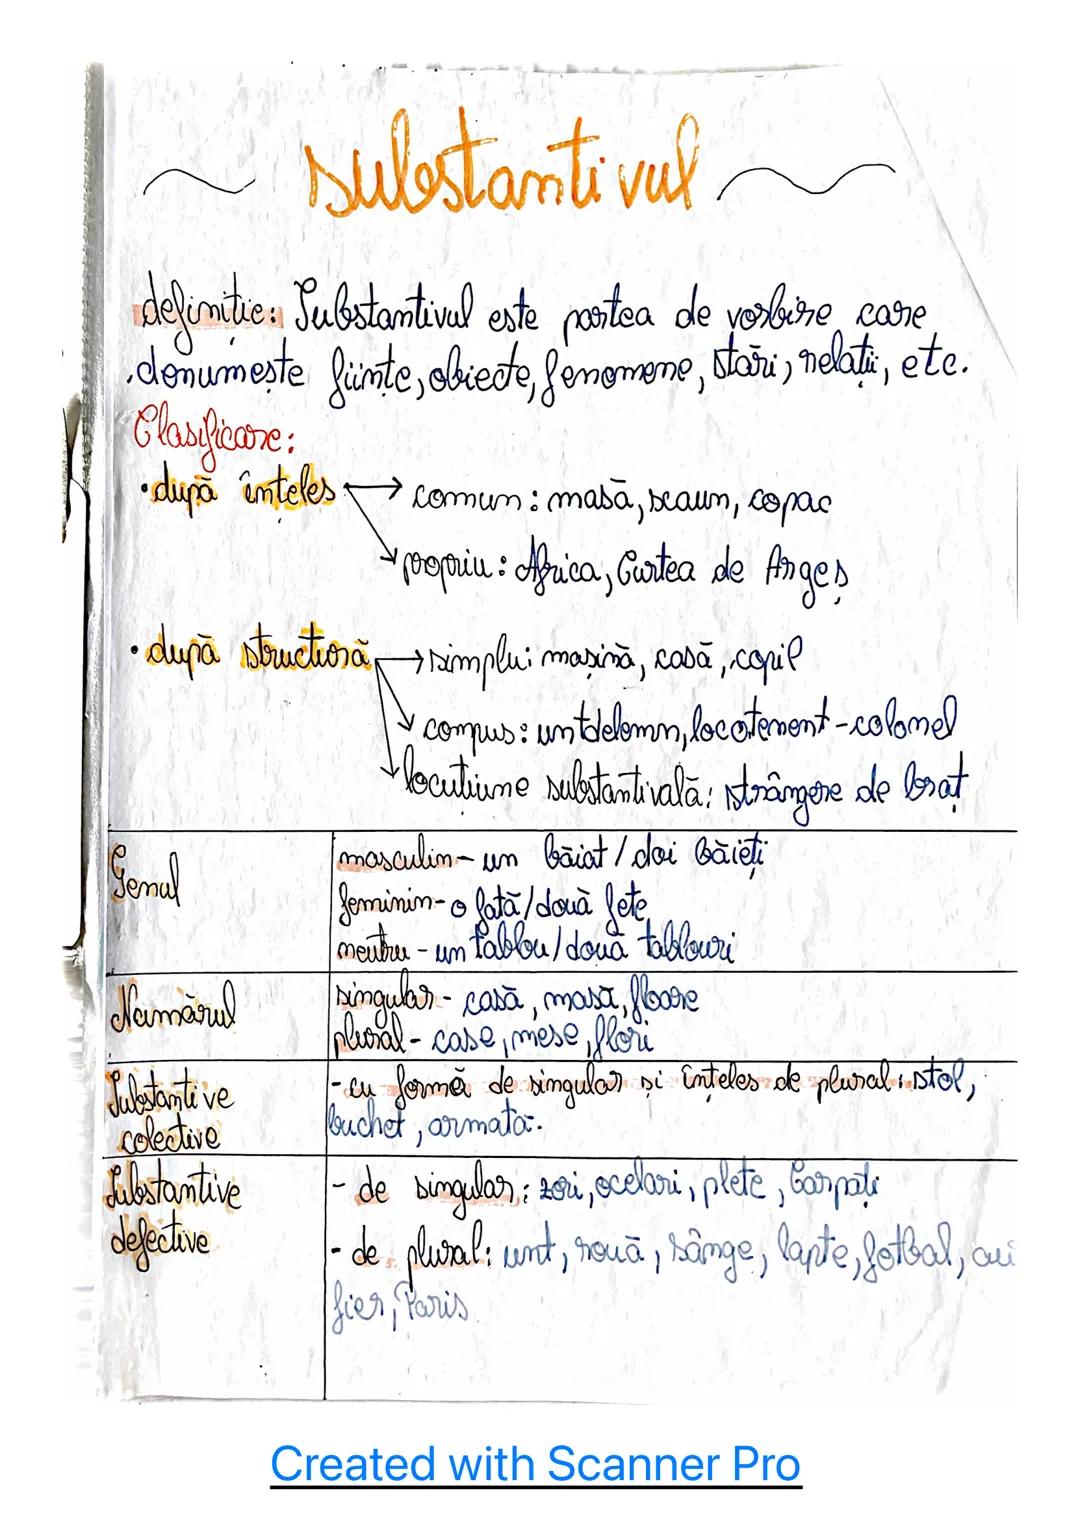 substantivul
definiție: Substantivul este partea de vorbire care
denumește ființe, obiecte, fenomene, stări, relații, etc.
Clasificare:
• după înțeles → comun: masă, scaun, copac
→ propriu: Africa, Curtea de Argeș
• după structură → simplu: mașină, casă, copil
→ compus: untdelemn, locotenent-colonel
→ locuțiune substantivală: strângere de braț
Genul
masculin - un băiat / doi băieți
feminin - o fată / două fete
neutru - un tablou / două tablouri
Numărul
singular - casă, masă, floare
plural - case, mese, flori
Substantive
colective
- cu formă de singular și înțeles de plural: stol,
buchet, armată.
Substantive
defective
- de singular: zori, ocelari, plete, Carpați
- de plural: unt, rouă, sânge, lapte, fotbal,
fier, Paris
Created with Scanner Pro